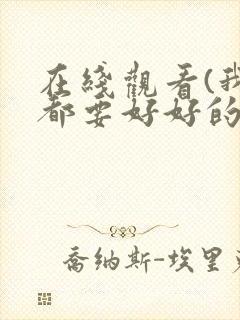 在綫觀看(我
都要好好的
喬納斯-埃里克